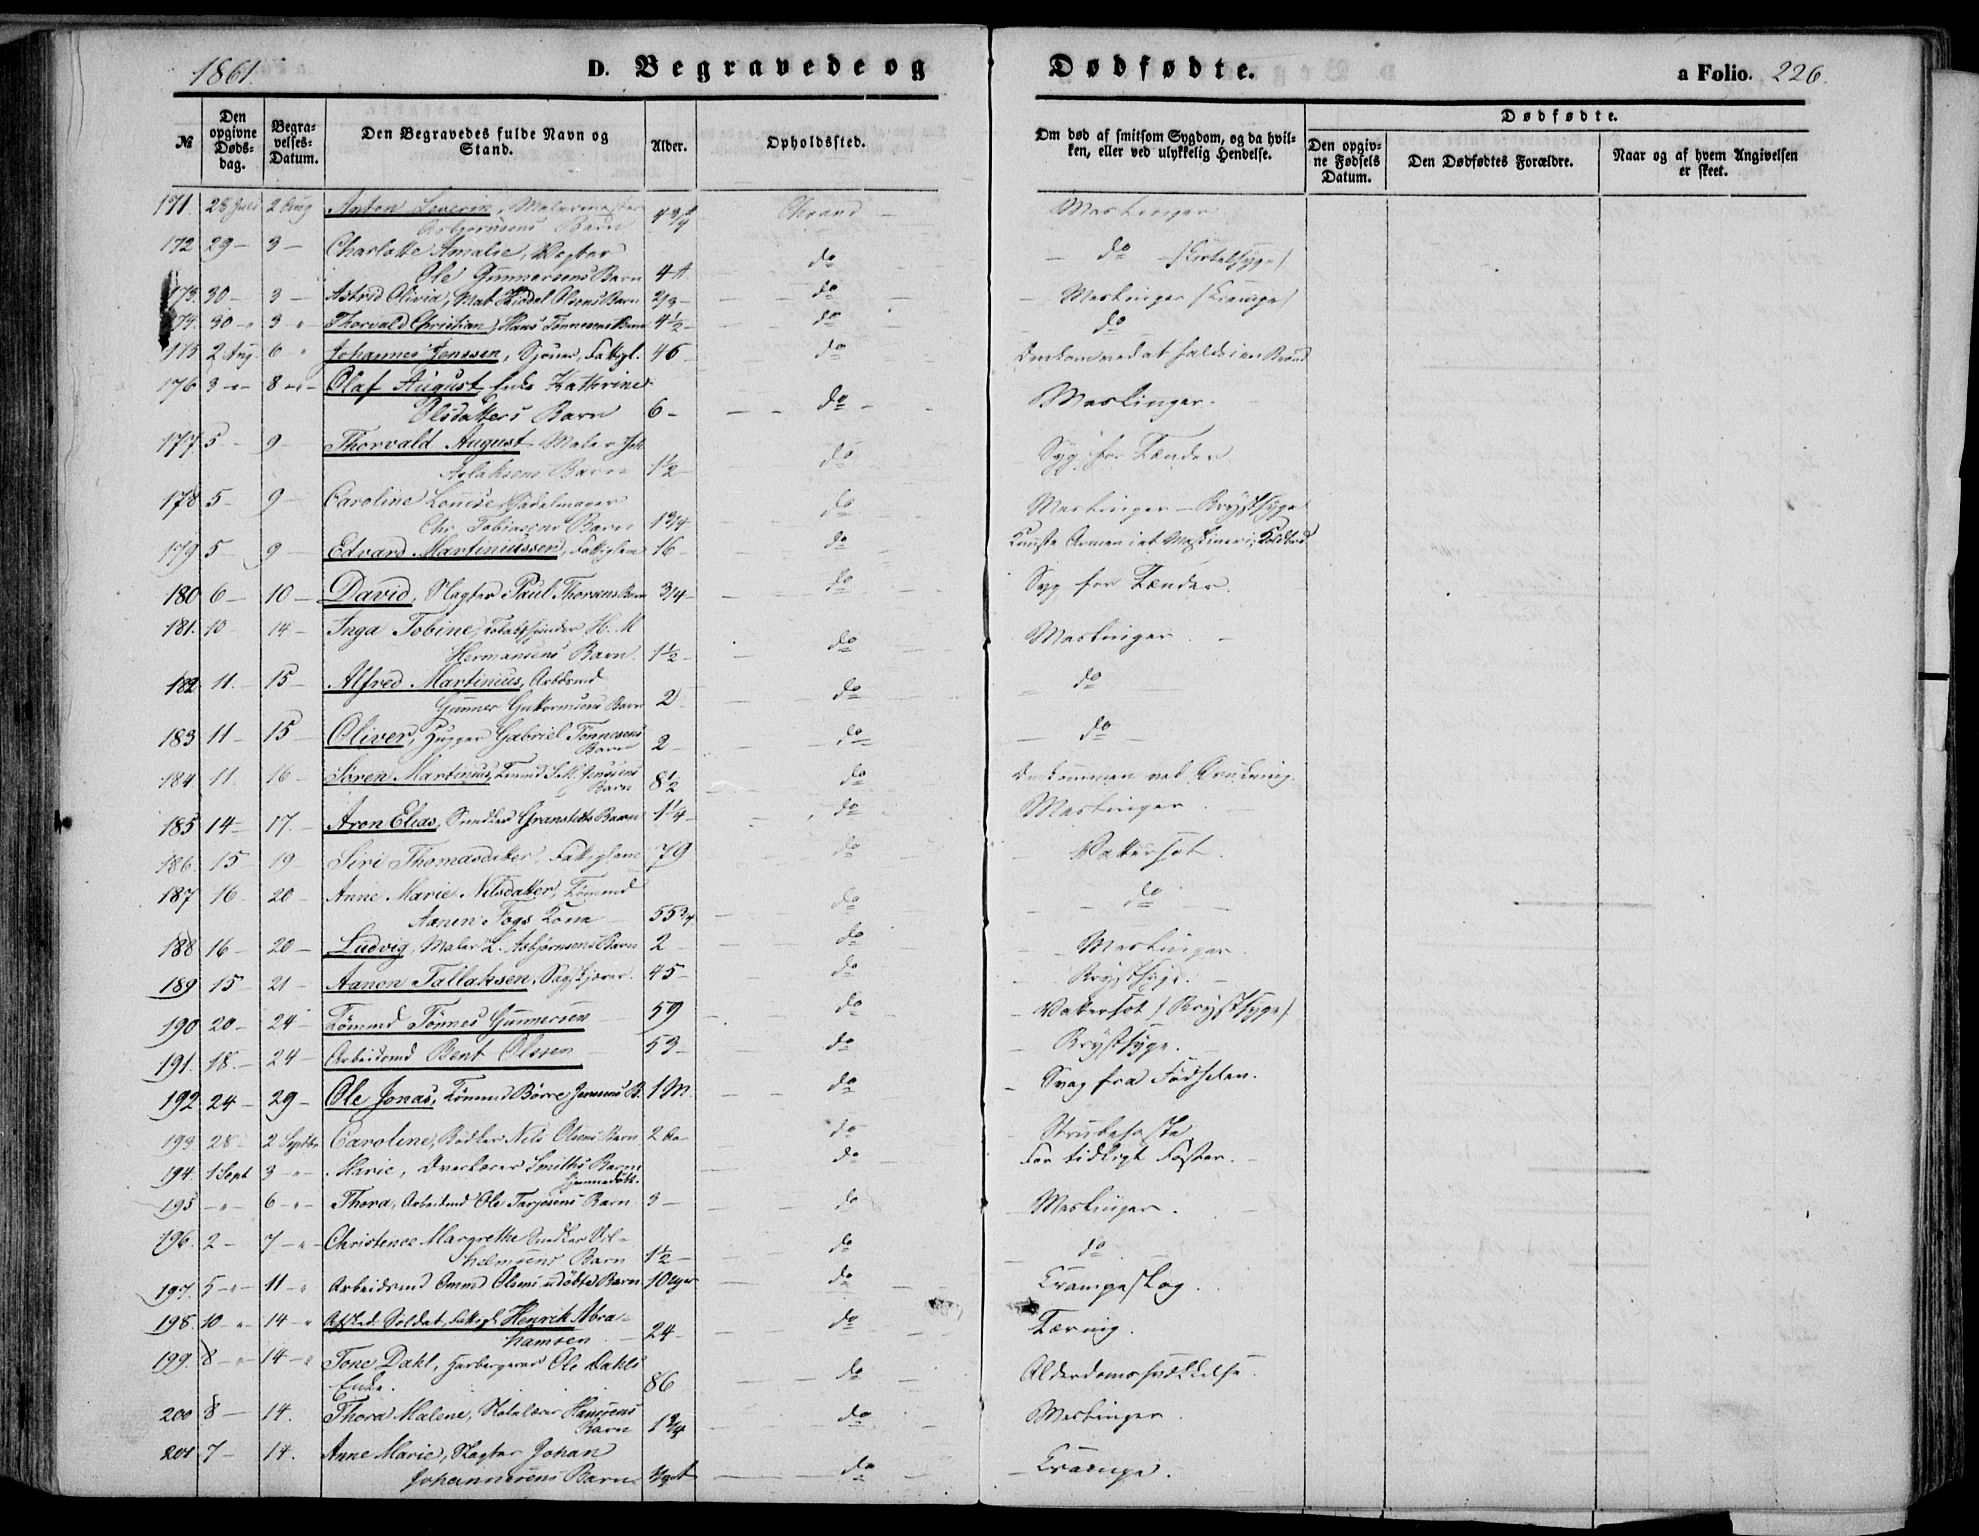 1861.
D. Begravede og Dødfødte.
a Folio. 226.
№
Den opgivne Døds-dag.
Begra-velses-Datum.
Den Begravedes fulde Navn og Stand.
Alder.
Opholdssted.
Om død af smitsom Sygdom, og da hvil-ken, eller ved ulykkelig Hendelse.
Dødfødte.
Den opgiv-ne Fødsels Datum.
Den Dødfødtes Forældre.
Naar og af hvem Angivelsen er skeet.
171. 28 Juli 2 Aug Anton Severin, Malermester
Asbjørnsens Barn 4 3/4 Chrsand Meslinger
172 29 - 3 - Charlotte Amalie, Vægter
Ole Gunnersens Barn 4 do do (Kirtelsyge)
173. 30 - 3 - Astrid Olivia, Mat. Olsens Barn 2/3 - do Meslinger (Krampe)
174. 30 - 3 " Thorvald Christian, Hans Tønnesens Barn 4 1/2 - do do
175 2 Aug 6 " Johannes Jenssen, Sjouer, Fattigl. 46 do Omkommed at falde i en Brønd
176 3 - 8 - Olaf August, Kathrine
Olsdatters Barn 6 - do Meslinger.
177. 5 - 9 - Thorvald August Maler Joh
Aslaksens Barn 1 1/2 - do Syg for Tænder
178 5 - 9 - Caroline Louise, Sadelmager
Chr. Tobiasens Barn 1 3/4 do Meslinger - Brystsyge
179 5 - 9 - Edvard Martiniussen, Fattiglem 16 - do Knuste Armen i et Maskineri, Koldbrand
180 6 - 10 - David, Slagter Paul Thorsens Barn 3/4 - do Syg for Tænder.
181. 10 14 - Inga Tobine, H. M
Hermansens Barn. 1 1/2 - do Meslinger
182 11. - 15 - Alfred Martinius, Arbdsmd
Gunner Guttormsens Barn 2 - do do
183 11 - 15 - Oliver, Hugger Gabriel Tønnesens
Barn 2 - do do
184. 11. 16 - Søren Martinius, Tømmd Jenssens
Barn 8 1/2 do Omkommen ved Drukning.
185 14 - 17. - Aron Elias, Snedker Granstedts Barn 1 1/4 - do Meslinger
186. 15 19 - Siri Thomasdatter, Fattiglem 79 do Vattersot.
187 16 - 20 - Anne Marie Nilsdatter, Tømmd
Aanen Fogs Kone 55 3/4 do do
188 16 - 20 - Ludvig, Maler L. Asbjørnsens Barn 2 - do Meslinger
189 15 - 21 - Aanen Tallaksen, Sagskjærer. 45 - do Brystsyge.
190 20 - 24 - Tømmd Tønnes Gunnersen 59 do Vattersot (Brystsyge)
191. 18. - 24 - Arbeidsmd Bent Olssen 53 - do Brystsyge.
192 24 - 29 - Ole Jonas, Tømmd Børre Jenssens B. 1 M. do Svag fra Fødselen.
193 28 - 2 Septbr Caroline, Bødker Nils Olsens Barn 2 do Strubehoste
194. 1 Sept 3 " Marie, Overlærer Smiths Barn
hjemmedøbt. do For tidligt Foster.
195 - " - 6 - " - Thora, Arbeidsmd Ole Tarjesens Barn 3 - do Meslinger.
196. 2 - 7 - " - Christence Margrethe Snedker Vil-
helmsens Barn 1 1/2 - do do
197. 5 - " - 11 - " Arbeidsmd Omund Olsens udøbte Barn 10 Uger do Krampeslag.
198. 10 - " 14 - " Afsked. Soldat, Fattigl Henrik Abra-
hamsen 24 - do Tæring.
199. 8 - " 14 - " Tone Dahl, Herbergerer Ole Dahls
Enke. 86 do Alderdomssvækkelse.
200 8 - 14. Thora Malene, Skolelærer Hanssens
Barn 1 3/4 do Meslinger.
201 7 - 14. Anne Marie, Slagter Johan
Johannesens Barn do Krampe.